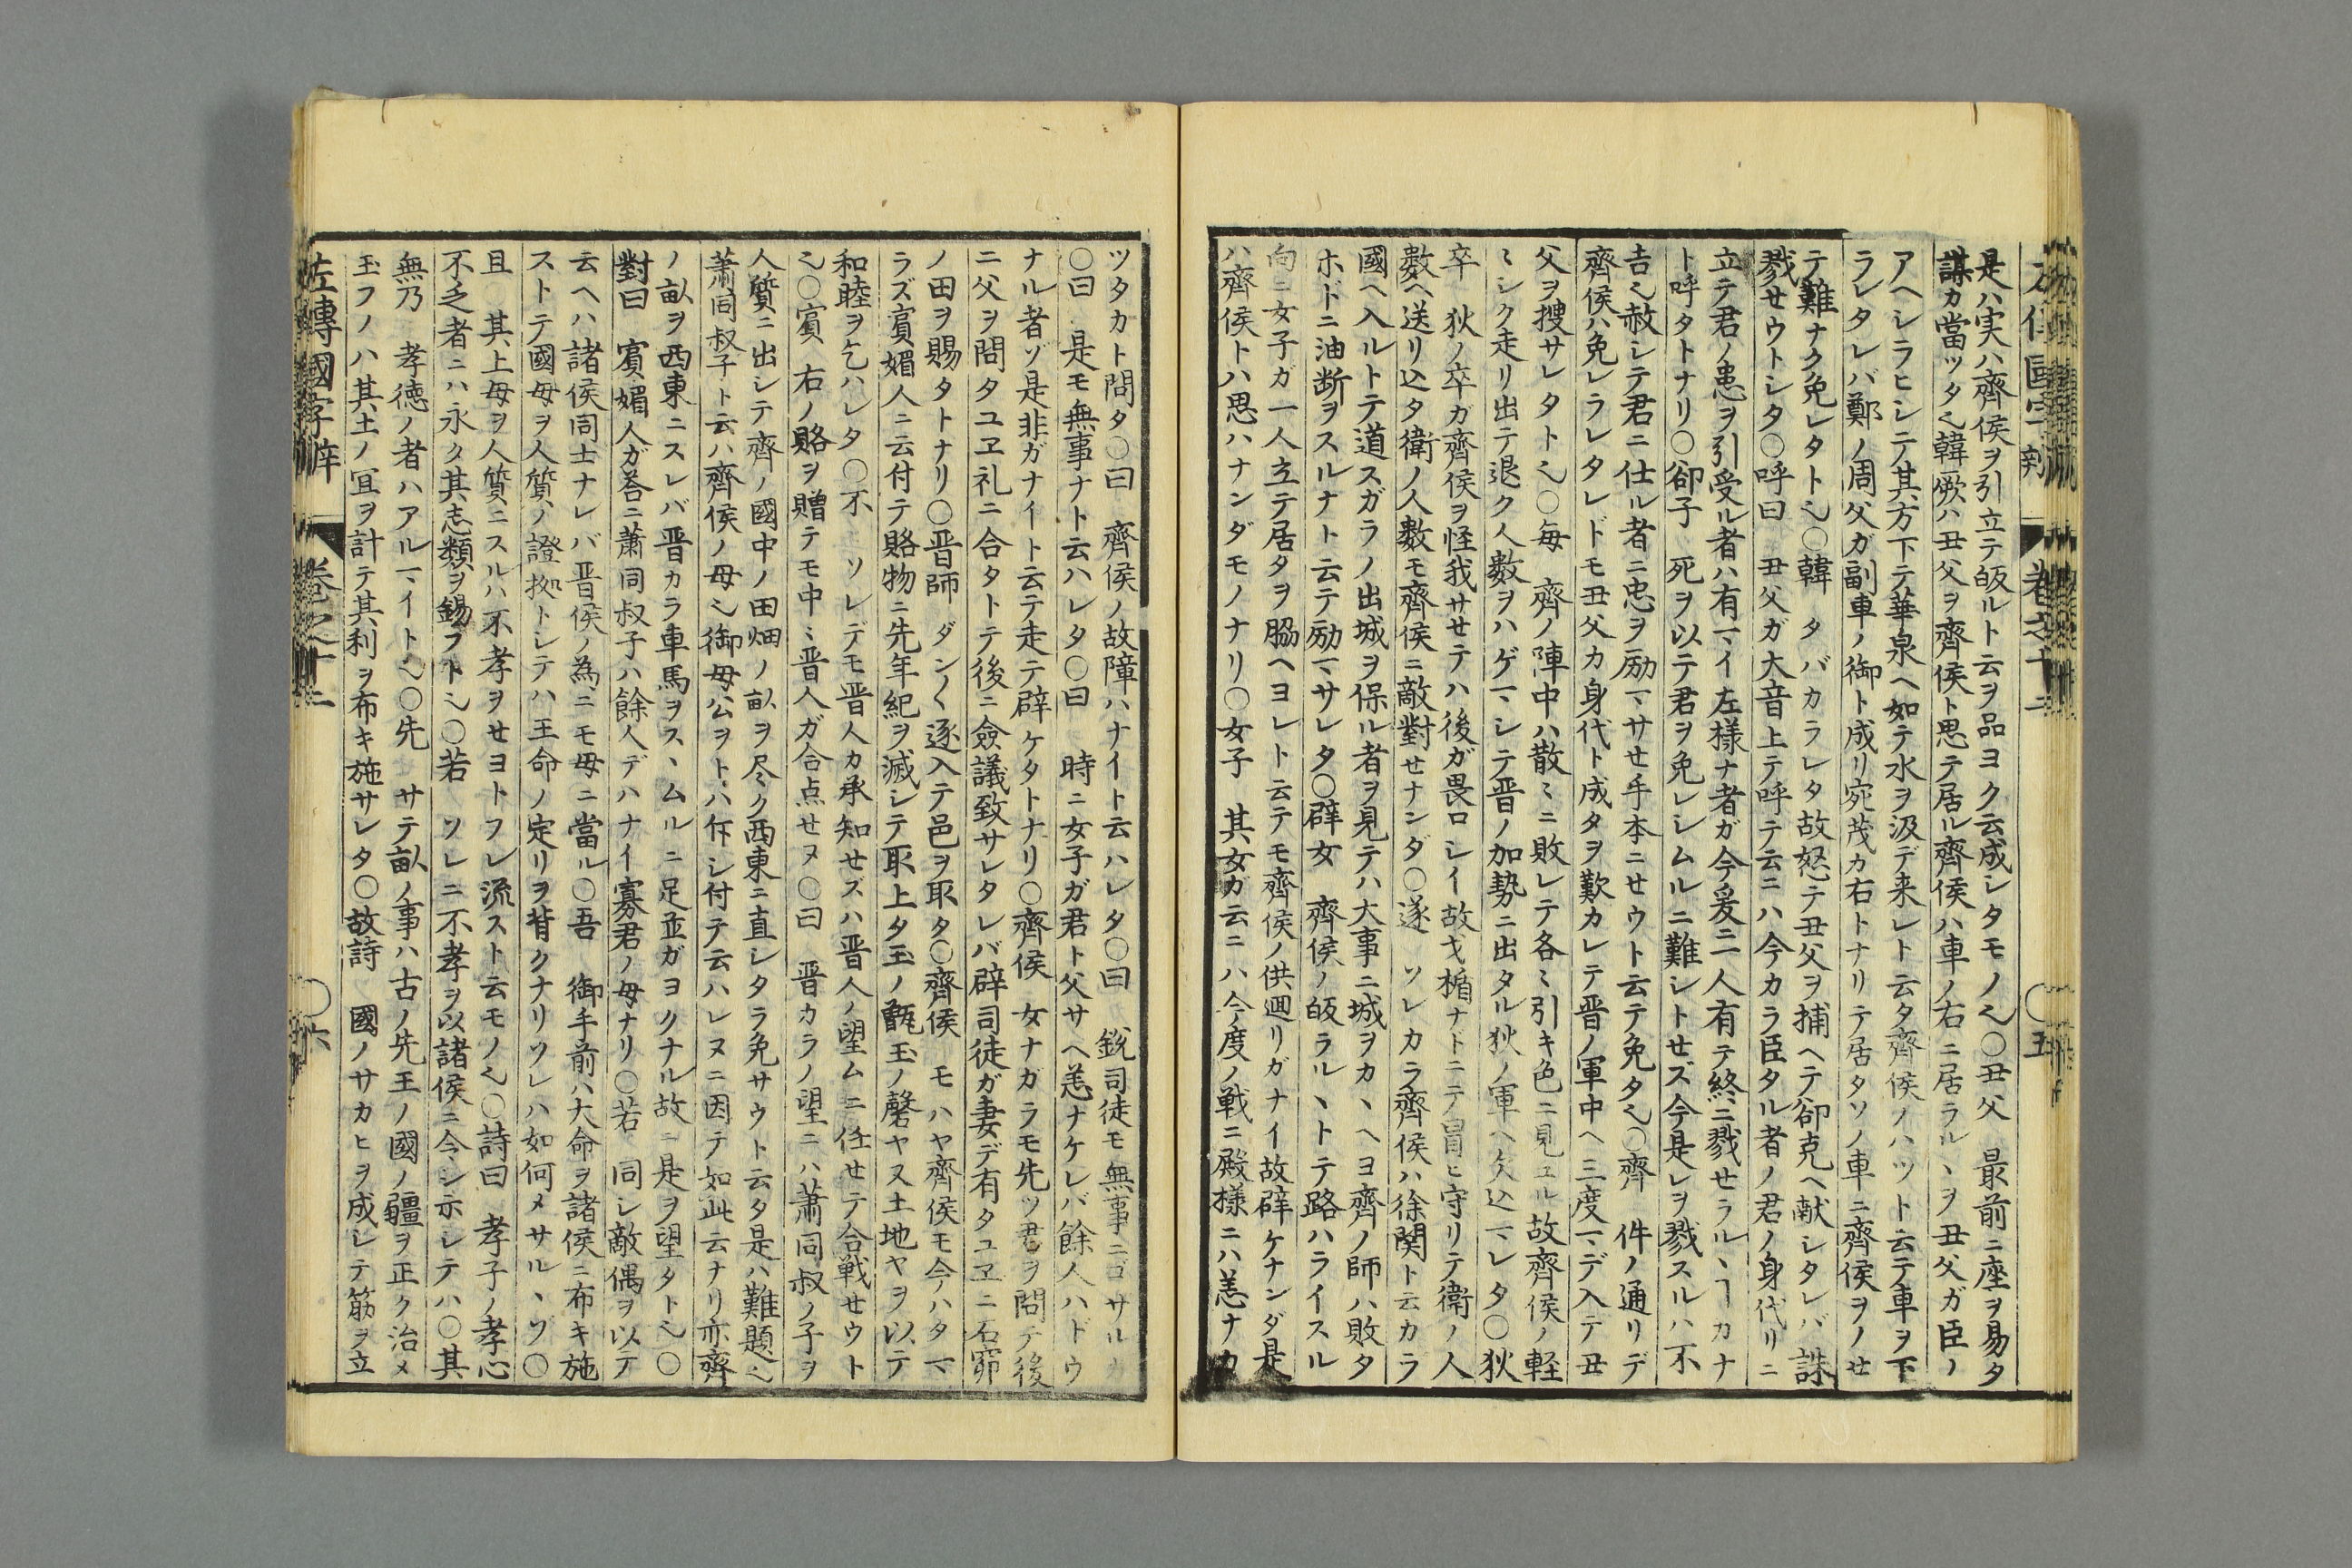 是ハ実ハ齊侯ヲ引立テ皈ルト云ヲ品ヨク云成シタモノ也〇丑父 最前ニ座ヲ易タ
謀カ當ツタ也韓厥ハ丑父ヲ齊侯ト思テ居ル齊侯ハ車ノ右ニ居ラルヽヲ丑父ガ臣ノ
アヘシラヒシテ其方下テ華泉ヘ如テ水ヲ汲デ来レト云タ齊侯ノハツト云テ車ヲ下
ラレタレバ鄭ノ周父ガ副車ノ御ト成リ宛茂カ右トナリテ居タソノ車ニ齊侯ヲノせ
テ難ナク免レタト也〇韓 タバカラレタ故怒テ丑父ヲ捕ヘテ郤克ヘ献シタレバ誅
戮せウトシタ〇呼曰 丑父ガ大音上テ呼テ云ニハ今カラ臣タル者ノ君ノ身代リニ
立テ君ノ患ヲ引受ル者ハ有マイ左様ナ者ガ今爰ニ一人有テ終ニ戮せラルヽヿカナ
ト呼タトナリ〇郤子 死ヲ以テ君ヲ免レシムルニ難シトせズ今是レヲ戮スルハ不
吉也赦シテ君ニ仕ル者ニ忠ヲ励マサせ手本ニせウト云テ免タ也〇齊 件ノ通リデ
齊侯ハ免レラレタレドモ丑父カ身代ト成タヲ歎カレテ晋ノ軍中ヘ三度マデ入テ丑
父ヲ搜サレタト也〇毎 齊ノ陣中ハ散〻ニ敗レテ各〻引キ色ニ見ユル故齊侯ノ軽
〻シク走リ出テ退ク人數ヲハゲマシテ晋ノ加勢ニ出タル狄ノ軍ヘ欠込マレタ〇狄
卒 狄ノ卒カ齊侯ヲ怪我サせテハ後ガ畏ロシイ故戈楯ナドニテ冒ヒ守リテ衛ノ人
數ヘ送リ込タ衛ノ人數モ齊侯ニ敵對せナンダ〇遂 ソレカラ齊侯ハ徐関ト云カラ
國ヘ入ルトテ道スガラノ出城ヲ保ル者ヲ見テハ大事ニ城ヲカヽヘヨ齊ノ師ハ敗タ
ホドニ油断ヲスルナト云テ励マサレタ〇辟女 齊侯ノ皈ラルヽトテ路ハライスル
向ニ女子ガ一人立テ居タヲ脇ヘヨレト云テモ齊侯ノ供廻リガナイ故辟ケナンダ是
ハ齊侯トハ思ハナンダモノナリ〇女子 其女ガ云ニハ今度ノ戦ニ殿様ニハ恙ナカ
卷之十二
〇五
ツタカト問タ〇曰 齊侯ノ故障ハナイト云ハレタ〇曰 鋭司徒モ無事ニゴサルカ
〇曰 是モ無事ナト云ハレタ〇曰 時ニ女子ガ君ト父サヘ恙ナケレバ餘人ハドウ
ナル者ゾ是非ガナイト云テ走テ辟ケタトナリ〇齊侯 女ナガラモ先ツ君ヲ問テ後
ニ父ヲ問タユヱ礼ニ合タトテ後ニ僉議致サレタレバ辟司徒ガ妻デ有タユヱニ石窌
ノ田ヲ賜タトナリ〇晋師 ダン〱逐入テ邑ヲ取タ〇齊侯 モハヤ齊侯モ今ハタマ
ラズ賓媚人ニ云付テ賂物ニ先年紀ヲ滅シテ取上タ玉ノ甗玉ノ磬ヤヌ土地ヤヲ以テ
和睦ヲ乞ハレタ〇不 ソレデモ晋人カ承知せズハ晋人ノ望ムニ任せテ合戦せウト
也〇賓 右ノ賂ヲ贈テモ中〻晋人ガ合点せヌ〇曰 晋カラノ望ニハ蕭同叔ノ子ヲ
人質ニ出シテ齊ノ國中ノ田畑ノ畝ヲ尽ク西東ニ直シタラ免サウト云タ是ハ難題也
蕭同叔子ト云ハ齊侯ノ母也御母公ヲトハ下シ付テ云ハレヌニ因テ如此云ナリ亦齊
ノ畝ヲ西東ニスレバ晋カラ車馬ヲスヽムルニ足並ガヨクナル故ニ是ヲ望タト也〇
對曰 賓媚人ガ荅ニ蕭同叔子ハ餘人デハナイ寡君ノ母ナリ〇若 同シ敵偶ヲ以テ
云ヘハ諸侯同士ナレバ晋侯ノ為ニモ母ニ當ル〇吾 御手前ハ大命ヲ諸侯ニ布キ施
ストテ國母ヲ人質ノ證拠トシテハ王命ノ定リヲ背クナリソレハ如何メサルヽゾ〇
且 其上母ヲ人質ニスルハ不孝ヲせヨトフレ流スト云モノ也〇詩曰 孝子ノ孝心
不乏者ニハ永ク其志類ヲ錫フト也〇若 ソレニ不孝ヲ以諸侯ニ令シ示シテハ〇其
無乃 孝徳ノ者ハアルマイト也〇先 サテ畝ノ事ハ古ノ先王ノ國ノ疆ヲ正ク治メ
玉フノハ其土ノ冝ヲ計テ其利ヲ布キ施サレタ〇故詩 國ノサカヒヲ成シテ筋ヲ立
左傳國字辨 卷之十二
〇六